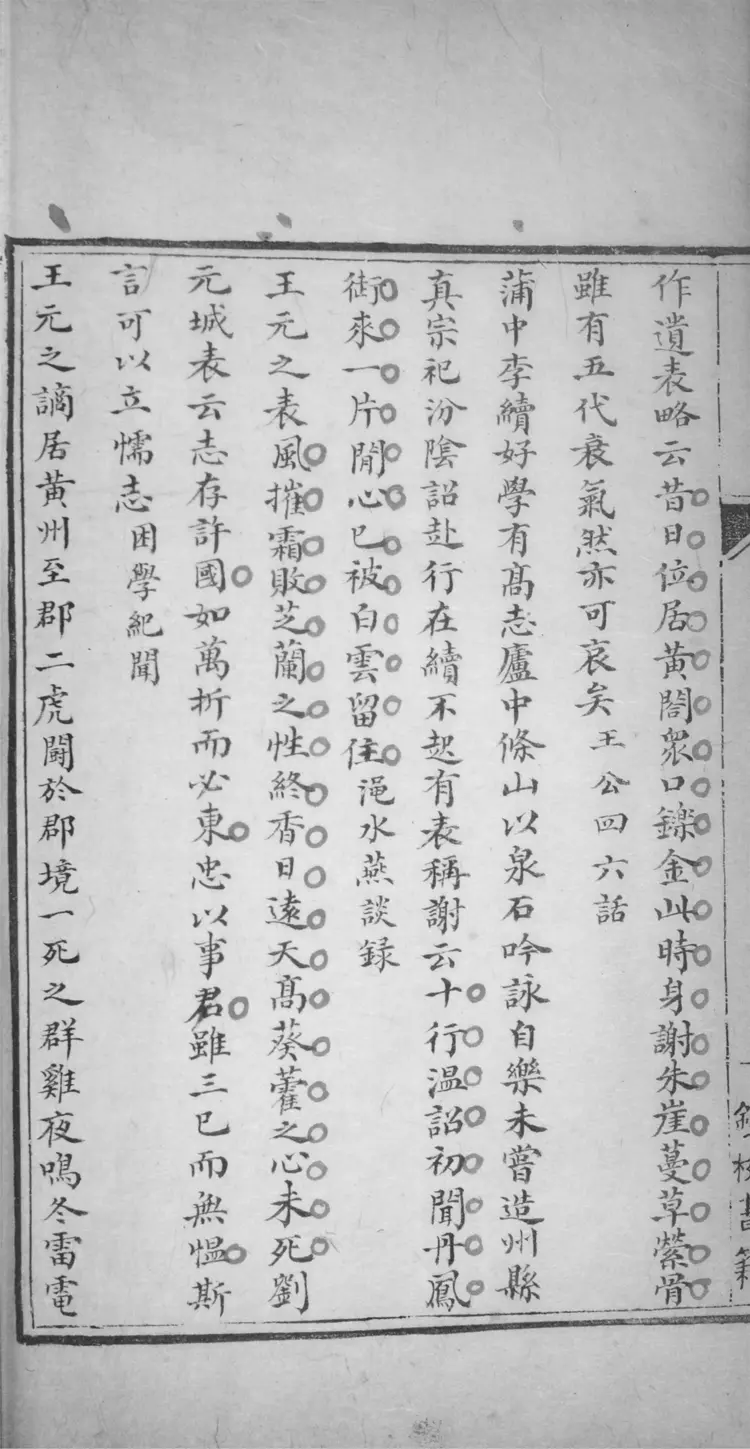 作遺表略云昔日位居黄閤衆口鑠金此時身謝朱崖蔓草縈骨
雖有五代衰氣然亦可哀矣王公四六話
蒲中李續好學有髙志廬中條山以泉石吟詠自樂未嘗造州縣
真宗祀汾陰詔赴行在續不起有表稱謝云十行温詔初聞丹鳳
銜來一片閒心已被白雲留住澠水燕談録
王元之表風摧霜敗芝蘭之性終香日遠天髙葵藿之心未死劉
元城表云志存許國如萬折而必東忠以事君雖三已而無愠斯
言可以立懦志困學紀聞
王元之謫居黄州至郡二虎鬪於郡境一死之群雞夜鳴冬雷電